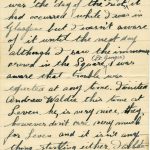 was the day of the riot, it
had occurred while I was in
Glasgow. but I wasn't aware
of it until the next day
although I saw the immense
crowd in the Square, I was
aware that trouble was
expected at any time. I visited
Andrew Waldie this time at
Leven. he is very nice, they
however don't care very much
for Leven and it is in any